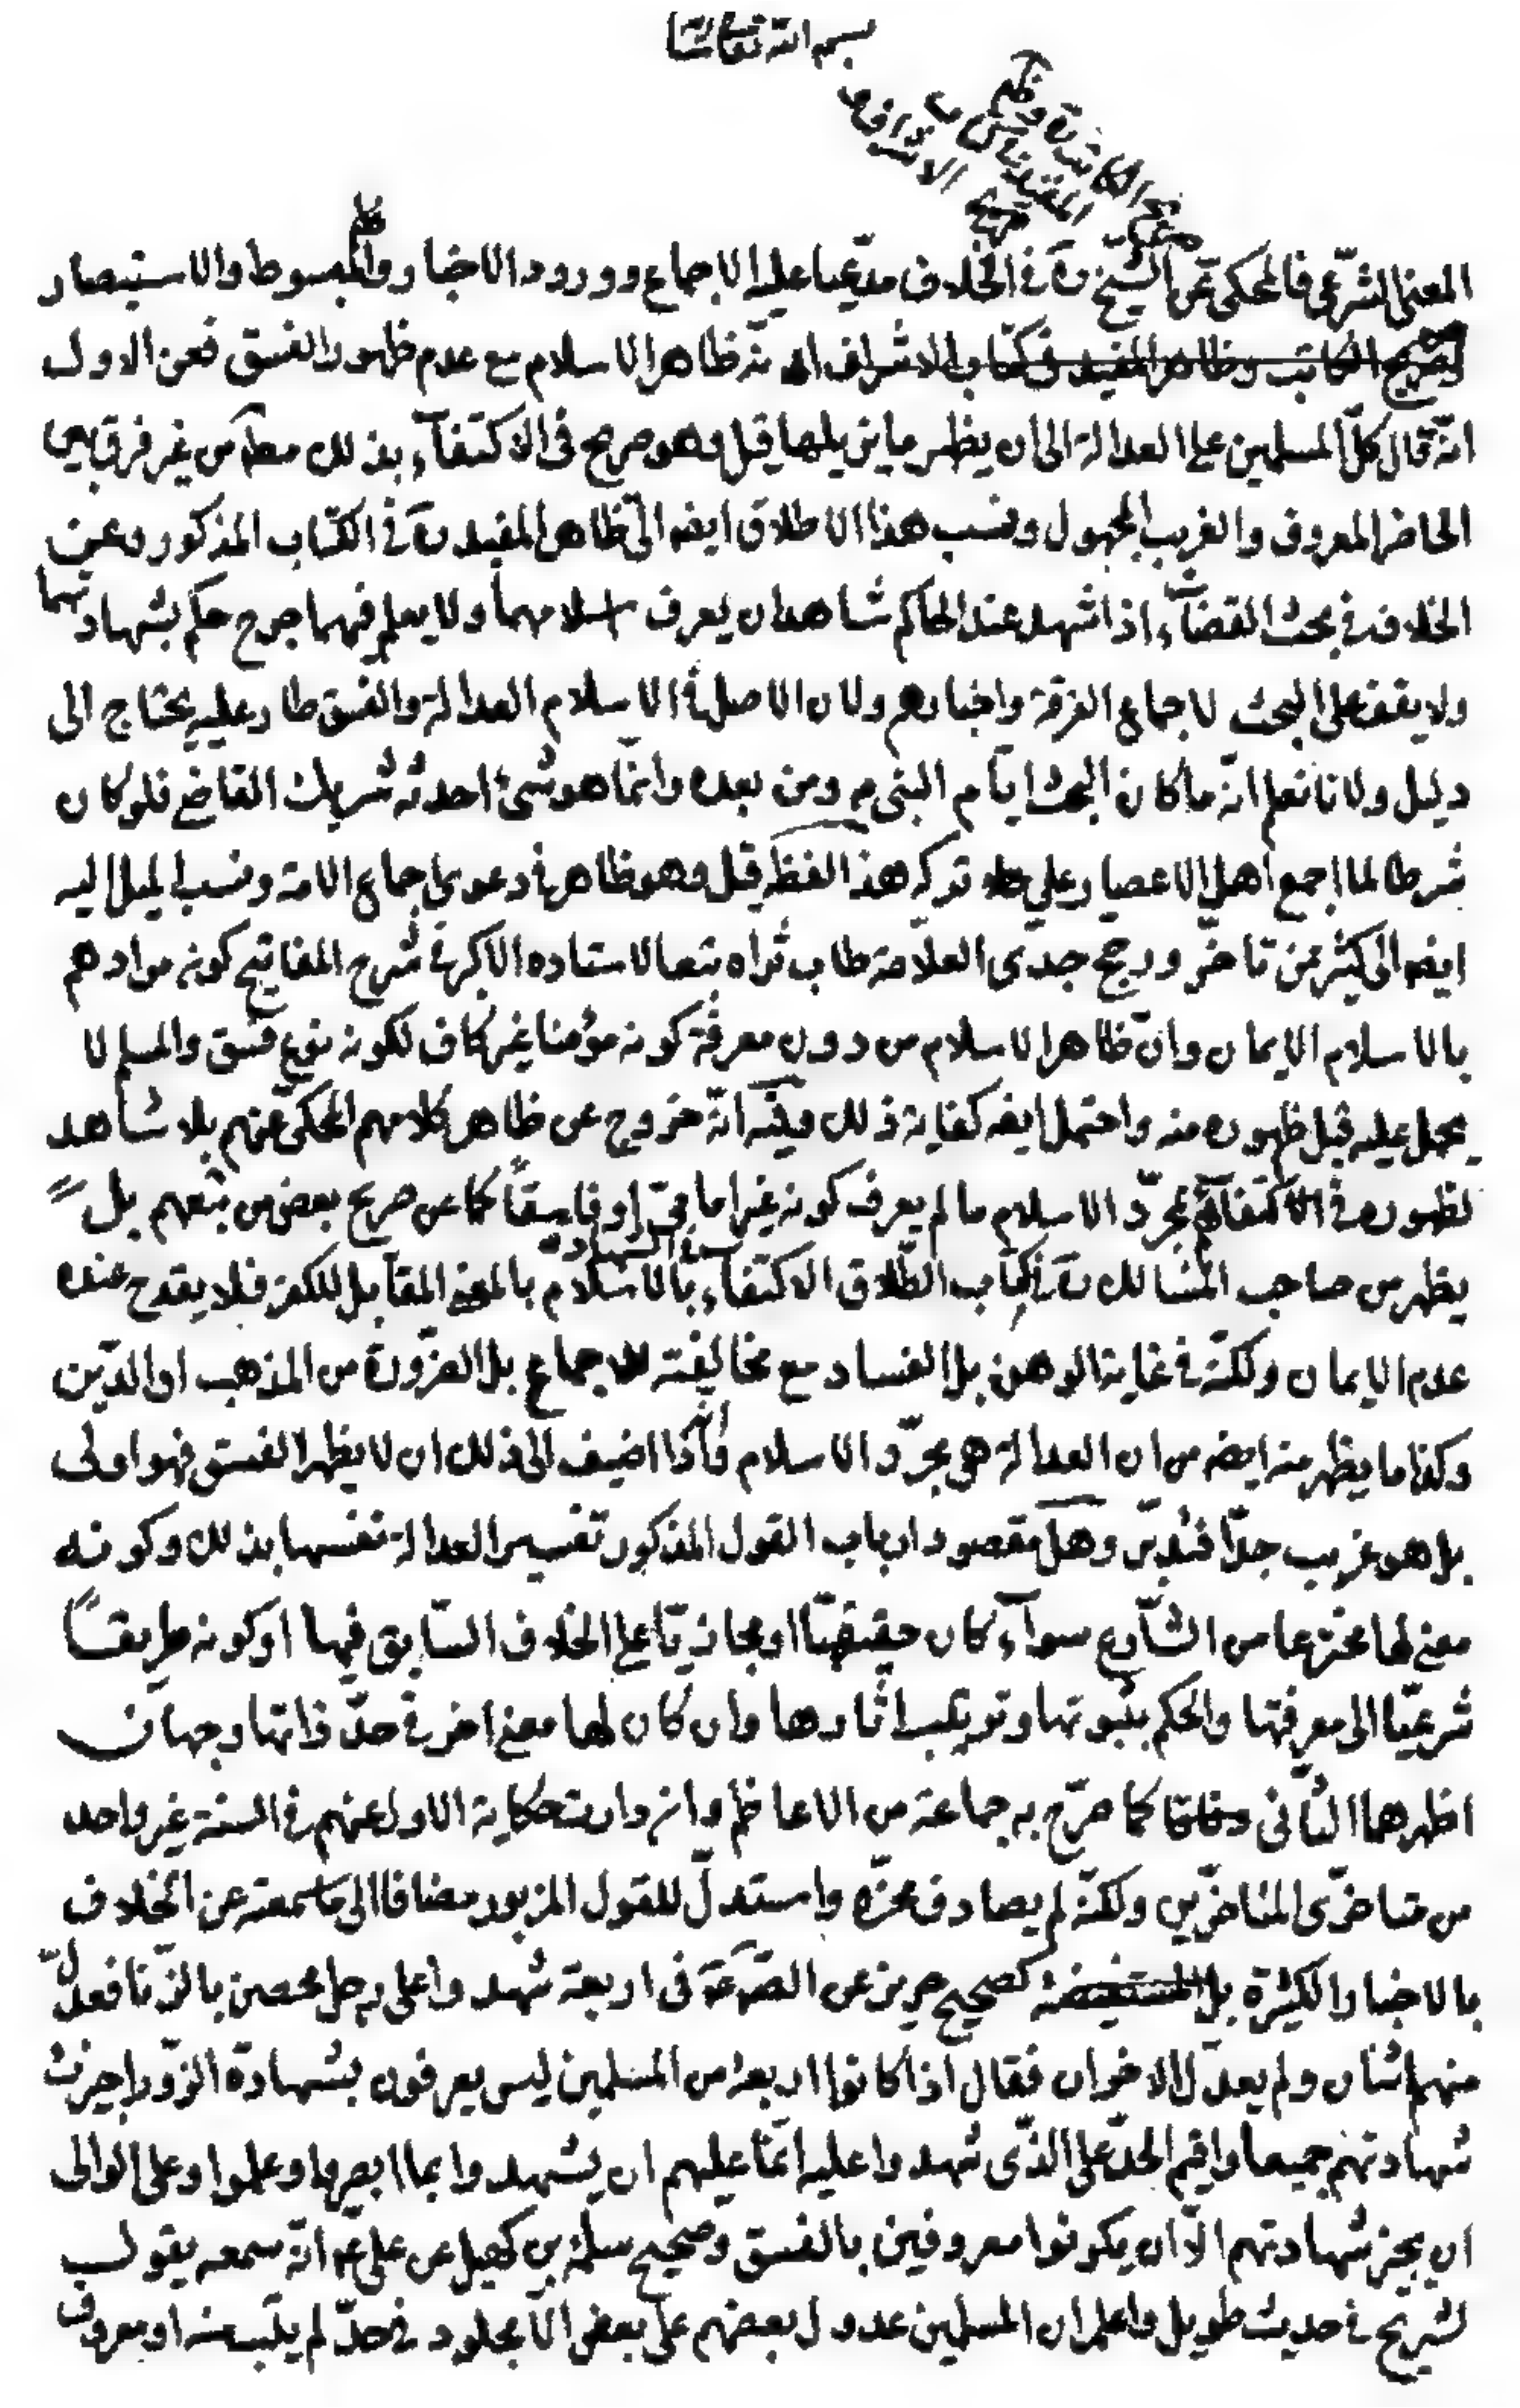 بسم الله تعالى
صريح الكاتب وظاهر
المفيد في كتاب
الاشراف
المعنى الشرعي فالمحكى عن الشيخ ره في الخلاف مدّعيا عليه الاجماع وورود الاخبار والمبسوط والاستبصار
وصريح الكاتب وظاهر المفيد في كتاب الاشراف انه ظاهر الاسلام مع عدم ظهور الفسق فعن الاول
انّه قال كلّ المسلمين على العدالة الى ان يظهر ما يزيلها قيل وهو صريح في الاكتفآء بذلك مط من غير فرق بين
الحاضر المعروف والغريب المجهول ونسب هذا الاطلاق ايضه الى ظاهر المفيد ره في الكتاب المذكور وعن
الخلاف في بحث القضآء اذا شهد عند الحاكم شاهدان يعرف اسلامهما ولا يعلم فيهما جرح حكم بشهادتهما
ولا يقف على البحث لاجماع الفرقة واخبارهم ولان الاصل في الاسلام العدالة والفسق طار عليه يحتاج الى
دليل ولانا نعلم انّه ما كان البحث ايّام النبي ص ومن بعده وانّما هو شئ احدثه شريك القاضي فلو كان
شرطا لما اجمع اهل الاعصار على تركه هذا لفظه قيل وهو ظاهر في دعوى اجماع الامة ونسب الميل اليه
ايضه الى كثير ممن تاخّر ورجح جدّى العلاّمة طاب ثراه تبعا لاستاده الاكبر في شرح المفاتيح كونه مرادهم
بالاسلام الايمان وانّ ظاهر الاسلام من دون معرفة كونه مؤمنا غير كاف لكونه نوع فسق والمسلم لا
يحمل عليه قبل ظهوره منه واحتمل ايضه كفاية ذلك وفيه انّه خروج عن ظاهر كلامهم المحكى عنهم بلا شاهد
لظهوره في الاكتفآء بمجرّد الاسلام ما لم يعرف كونه غير امامىّ او فاسقاً كما عن صريح بعض من تبعهم بل
يظهر من صاحب المسالك ره في كتاب الطّلاق الاكتفآء في الشهادة بالاسلام بالمعنى المقابل للكفر فلا يقدح عنده
عدم الايمان ولكنّه في غاية الوهن بل الفساد مع مخالفته للاجماع بل الضّرورة من المذهب او الدّين
وكذا ما يظهر منه ايضه من ان العدالة هي مجرّد الاسلام وانّه اذا اضيف الى ذلك ان لا يظهر الفسق فهو اولى
بل هو غريب جدّا فتدبّر وهل مقصود ارباب القول المذكور تفسير العدالة نفسها بذلك وكونه
معنى لها مخترعا من الشّارع سوآء كان حقيقيّا او مجازيّا على الخلاف السّابق فيها او كونه طريقاً
شرعيّا الى معرفتها والحكم بثبوتها وترتيب اثارها وان كان لها معنى اخر في حدّ ذاتها وجهان
اظهرهما الثّانى وفاقا كما صرّح به جماعة من الاعاظم وان دارت حكاية الاول عنهم في السنة غير واحد
من متاخرّى المتاخرّين ولكنّه لم يصادف محزّه واستدلّ للقول المزبور مضافا الى ما سمعته عن الخلاف
بالاخبار الكثيرة بل المستفيضة كصحيح حريز عن الصّ ع في اربعة شهدوا على رجل محصن بالزّنا فعدل
منهم اثنان ولم يعدّل الاخران فقال اذا كانوا اربعة من المسلمين ليس يعرفون بشهادة الزّور اجيزت
شهادتهم جميعا واقيم الحدّ على الذّى شهدوا عليه انّما عليهم ان يشهدوا بما ابصروا وعلموا وعلى الوالى
ان يجيز شهادتهم الاّ ان يكونوا معروفين بالفسق وصحيح سلمة بن كهيل عن علي ع انّه سمعه يقول
لشريح في حديث طويل واعلم ان المسلمين عدول بعضهم على بعض الاّ مجلود في حدّ لم يتب منه او معروف